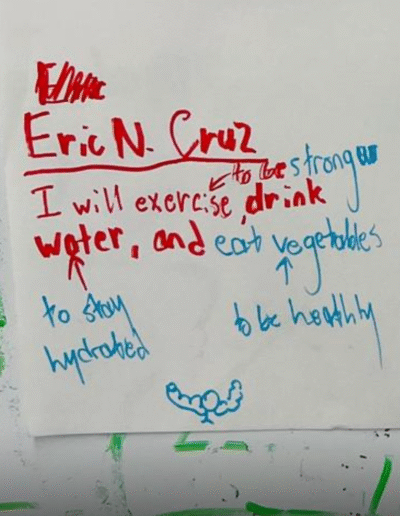 Eric N. Cruz
to be stronger
I will exercise, drink
water, and eat vegetables
to stay
hydrated
to be healthy